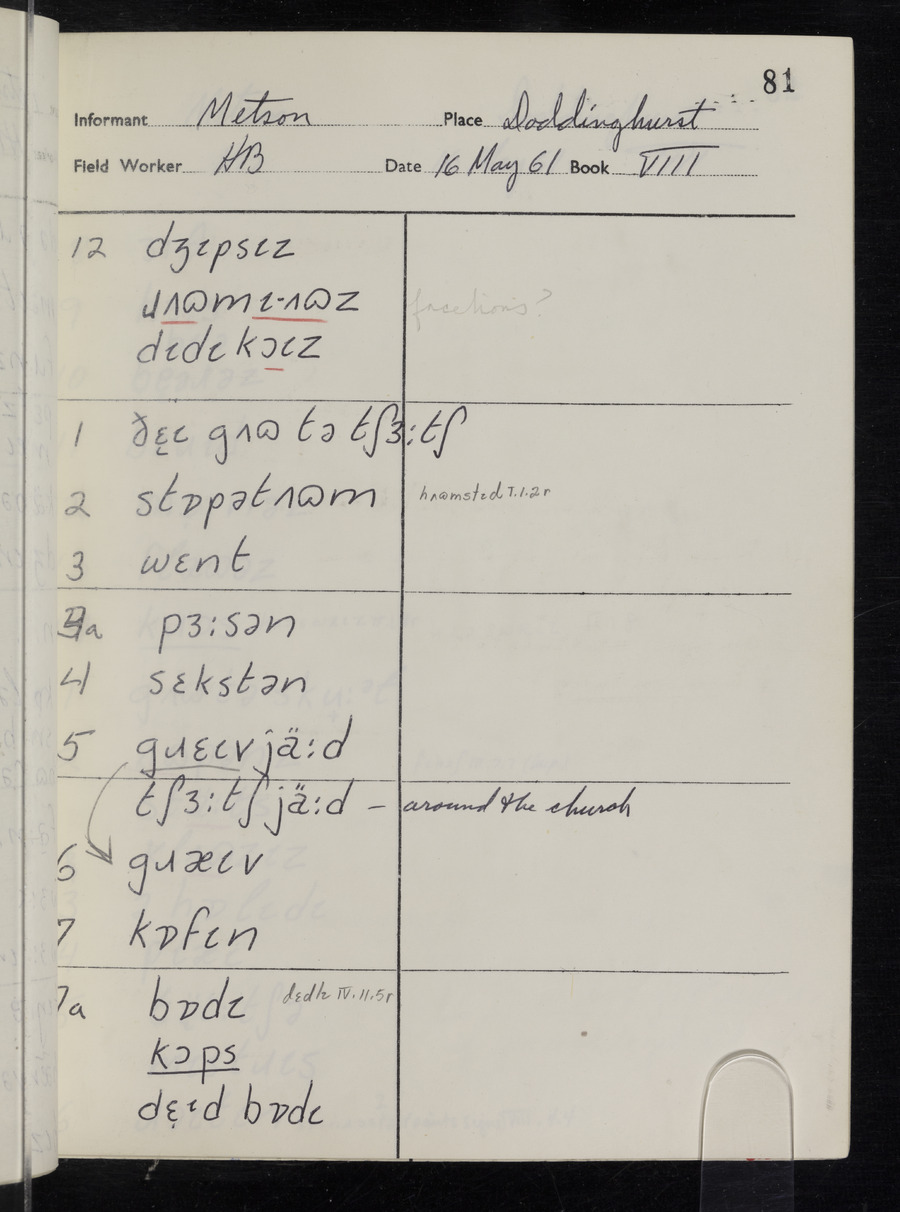 81
Informant Metson Place Doddinghurst
Field Worker HB Date 16 May 61 Book VIII
12 dʒɩpsɩz
ɹʌɷmɩ·ʌɷz
dɩdɩkɔɩz
1 ðɛ̨ɩ gʌɷ tə tʃɜ:tʃ
2 stɒpətʌɷm hʌɷmstɛd I.1.2r
3 wɛnt
3a pɜ:sən
4 sɛkstən
5 gɹɛɩv jä:d
tʃɜ:tʃ jä:d – around the church
6 gɹæɩv
7 kɒfɩn
7a bɒdɩ IV.11.5r
kɔps
dɛ̨ɩd bɒdɩ